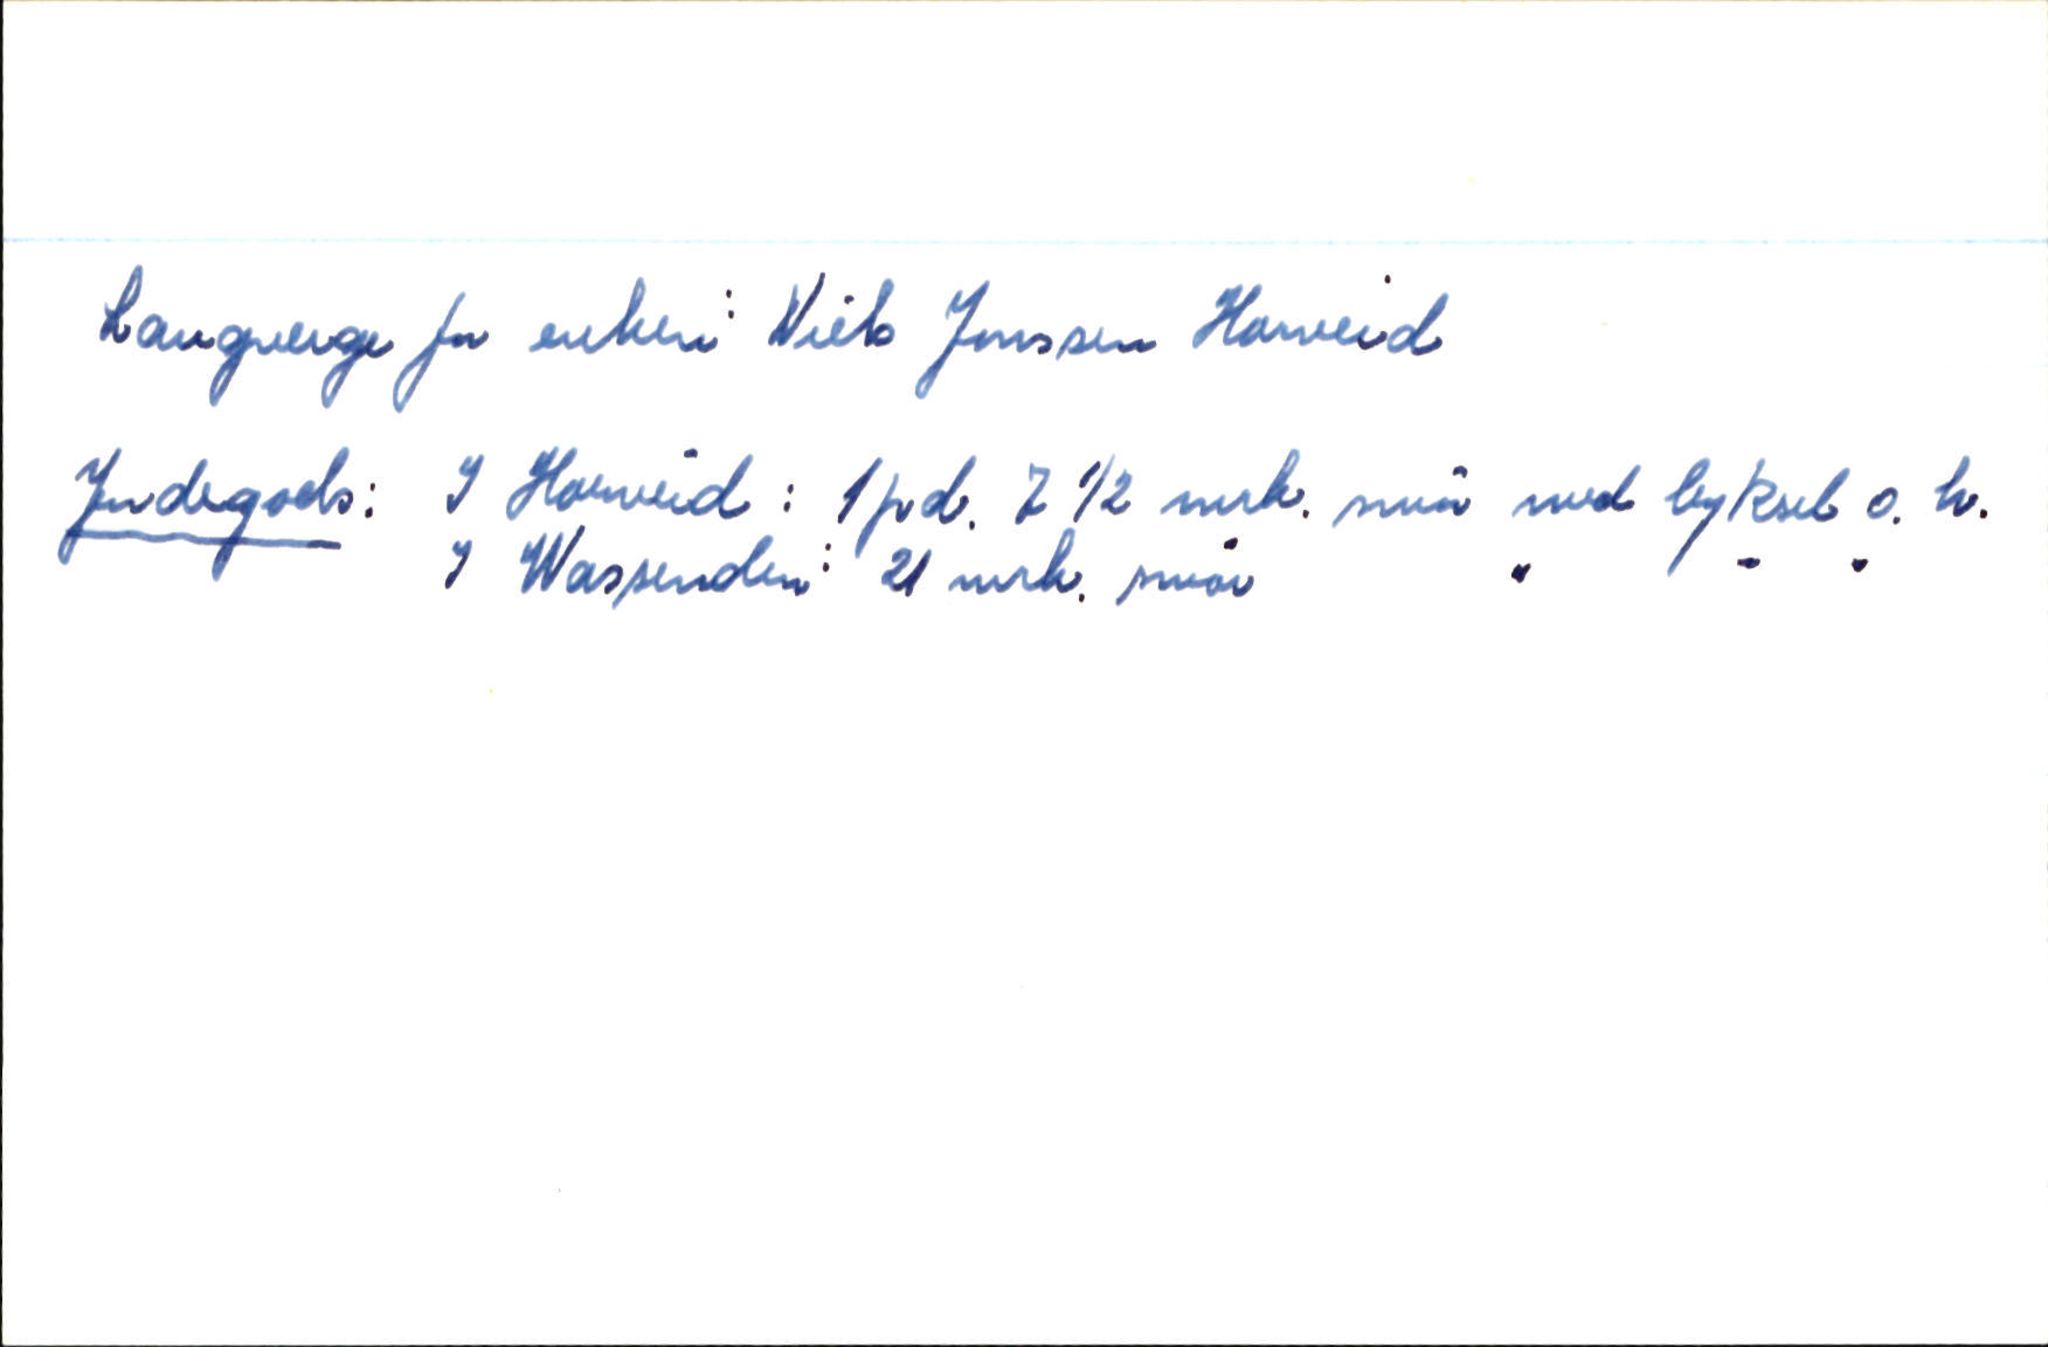 Laugverge for enken: Niels Jonssen Harveid
Jordegods: I Harveid: 1 pd. 7 1/2 mrk. smør med byksel o. h.
I Wassenden: 21 mrk. smør " " "